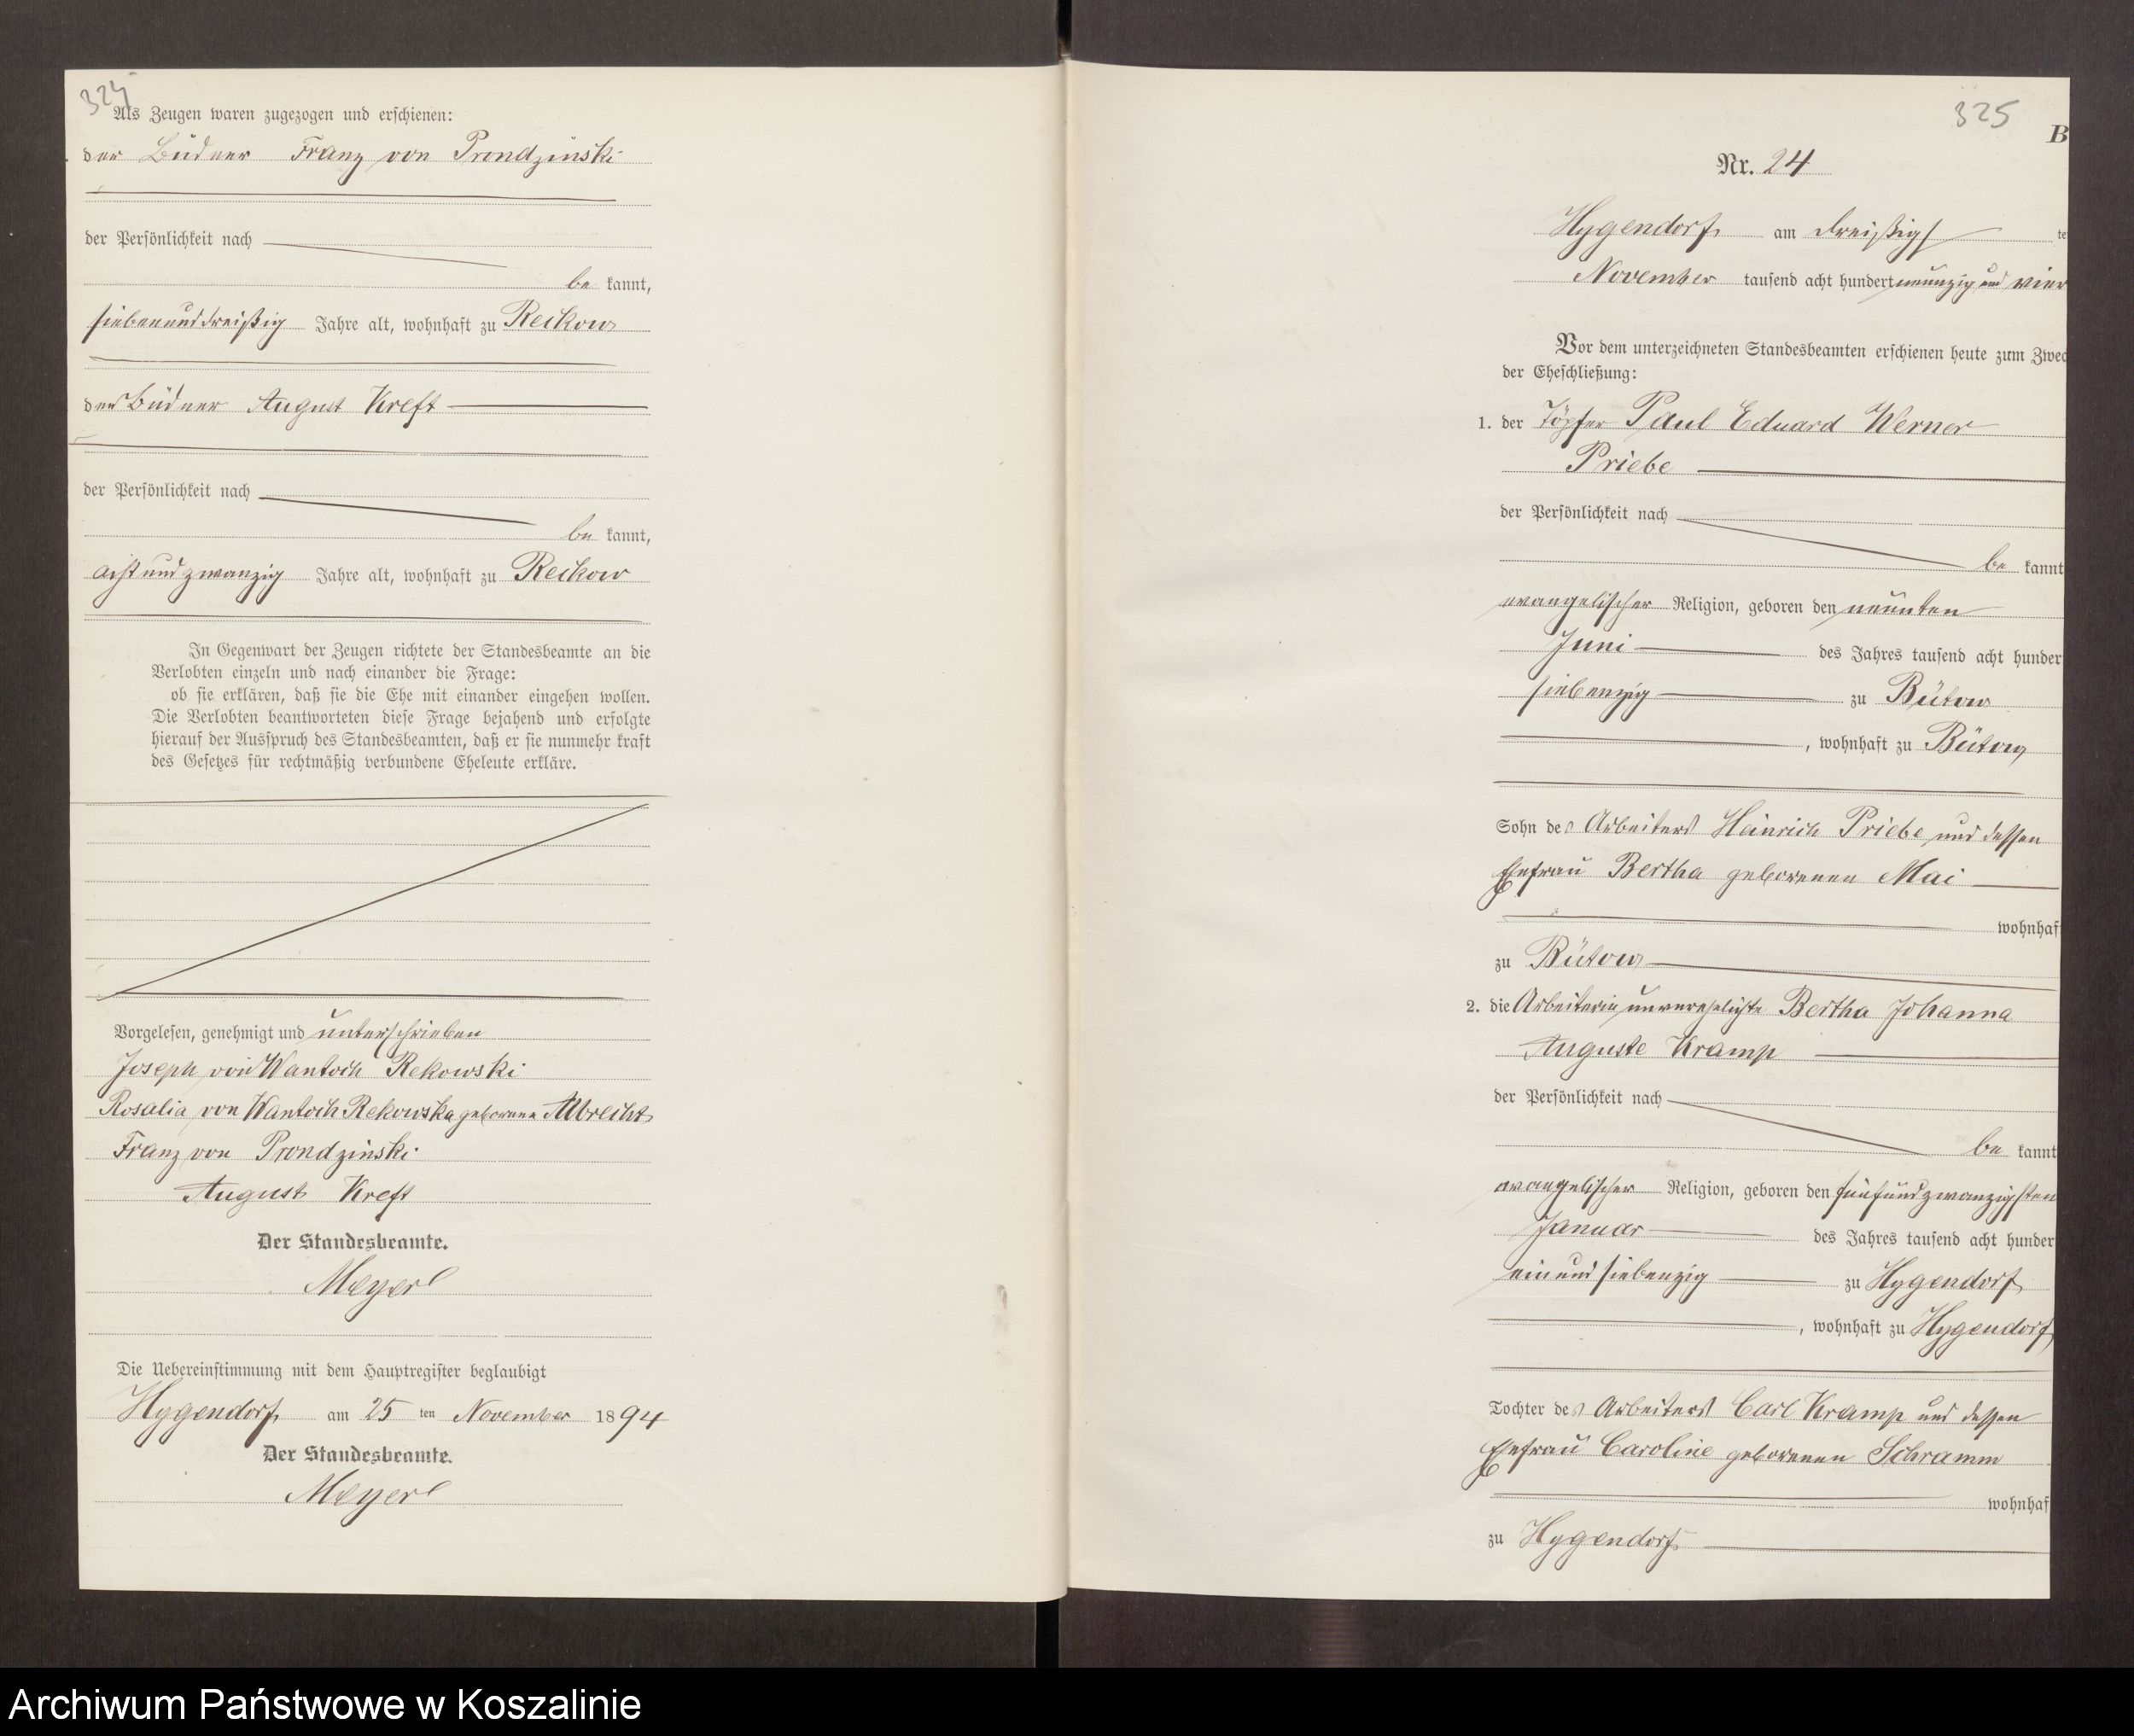 324
Als Zeugen waren zugezogen und erschienen:
der Büdner Franz von Prondzinski
der Persönlichkeit nach
be kannt,
siebenunddreißig Jahre alt, wohnhaft zu Reckow
der Büdner August Kreft
der Persönlichkeit nach
be kannt,
achtundzwanzig Jahre alt, wohnhaft zu Reckow
In Gegenwart der Zeugen richtete der Standesbeamte an die
Verlobten einzeln und nach einander die Frage:
ob sie erklären, daß sie die Ehe mit einander eingehen wollen.
Die Verlobten beantworteten diese Frage bejahend und erfolgte
hierauf der Ausspruch des Standesbeamten, daß er sie nunmehr kraft
des Gesetzes für rechtmäßig verbundene Eheleute erkläre.
Vorgelesen, genehmigt und unterschrieben
Joseph von Wantoch Rekowski
Rosalia von Wantoch Rekowska geborene Albrecht
Franz von Prondzinski
August Kreft
Der Standesbeamte.
Meyerl
Die Uebereinstimmung mit dem Hauptregister beglaubigt
Hygendorf am 25 ten November 1894
Der Standesbeamte.
Meyerl
325
B
Nr. 24
Hygendorf am dreißigs te
November tausend acht hundert neunzig und vier
Vor dem unterzeichneten Standesbeamten erschienen heute zum Zwec
der Eheschließung:
1. der Töpfer Paul Eduard Werner
Priebe
der Persönlichkeit nach
be kannt
evangelischer Religion, geboren den neunten
Juni des Jahres tausend acht hunder
siebenzig zu Bütow
, wohnhaft zu Bütow
Sohn des Arbeiters Heinrich Priebe und dessen
Ehefrau Bertha geborenen Mai
wohnhaf
zu Bütow
2. die Arbeiterin unverehelichte Bertha Johanna
Auguste Kramp
der Persönlichkeit nach
be kannt
evangelischer Religion, geboren den fünfundzwanzigsten
Januar des Jahres tausend acht hunder
einundsiebenzig zu Hygendorf
, wohnhaft zu Hygendorf
Tochter des Arbeiters Carl Kramp und dessen
Ehefrau Caroline geborenen Schramm
wohnhaf
zu Hygendorf
Archiwum Państwowe w Koszalinie